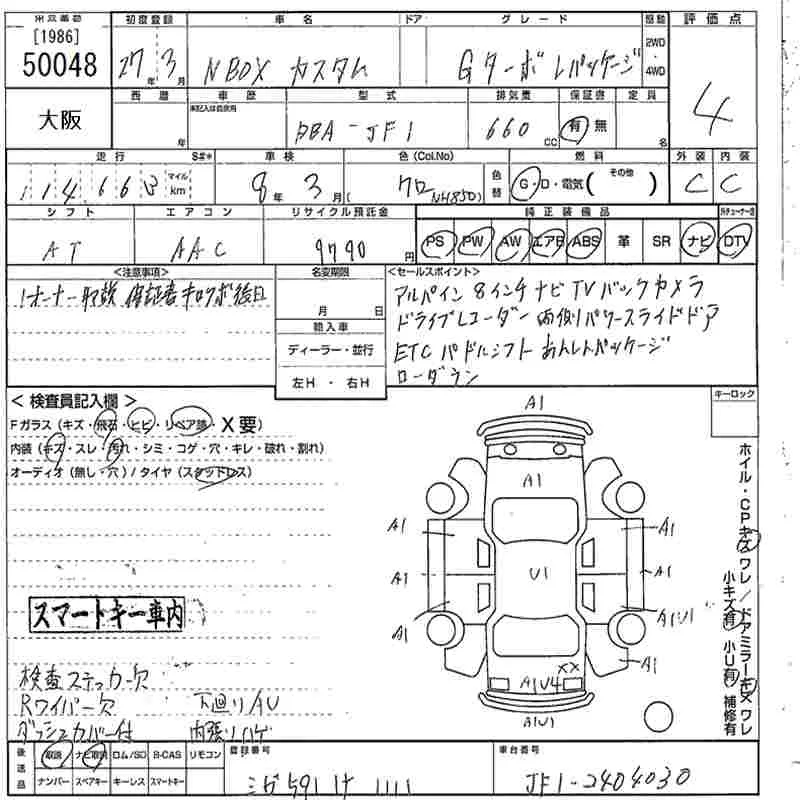 [1986]
50048
大阪
初度登録 車名 ドア グレード 駆動 評価点
27年3月 NBOX カスタム Gターボ Lパッケージ 2WD・4WD 4
西暦 車歴 型式 排気量 保証書 定員
年 未記入は自家用 DBA-JF1 660cc 有・無 名
走行 S#* 車検 色(Col.No) 燃料 外装 内装
114663 マイル km 8年3月 クロ(NH850) 色替 G・D・電気( その他 ) C C
シフト エアコン リサイクル預託金 純正装備品
AT AAC 9790円 PS PW AW エアB ABS 革 SR ナビ DTV
<注意事項> 名変期限 <セールスポイント>
1オーナー 取説 保証書 キロク ボ後日
月 日
輸入車
ディーラー・並行
左H・右H
アルパイン 8インチ ナビ TV バックカメラ
ドライブレコーダー 両側パワースライドドア
ETC パドルシフト あんしんパッケージ
ローダウン
<検査員記入欄> キーロック
Fガラス(キズ・飛石・ヒビ・リペア跡・X要)
内装(キズ・スレ・汚れ・シミ・コゲ・穴・キレ・破れ・割れ)
オーディオ(無し・穴)/タイヤ(スタッドレス)
スマートキー車内
検査ステッカー欠
Rワイパー欠 下廻りAU
ダッシュカバー付 内張りハゲ
A1
A1
A1 A1
A1 U1 A1
A1 A1U1
A1
XX
A1U4
A1U1
ホイル・CPキズ ワレ/ドアミラーキズ ワレ
小キズ有 小U有 補修有
後送品 取説 ナビ取説 ロム/SD B-CAS リモコン
ナンバー スペアキー キーレス スマートキー
登録番号 車台番号
1111 JF1-2404030